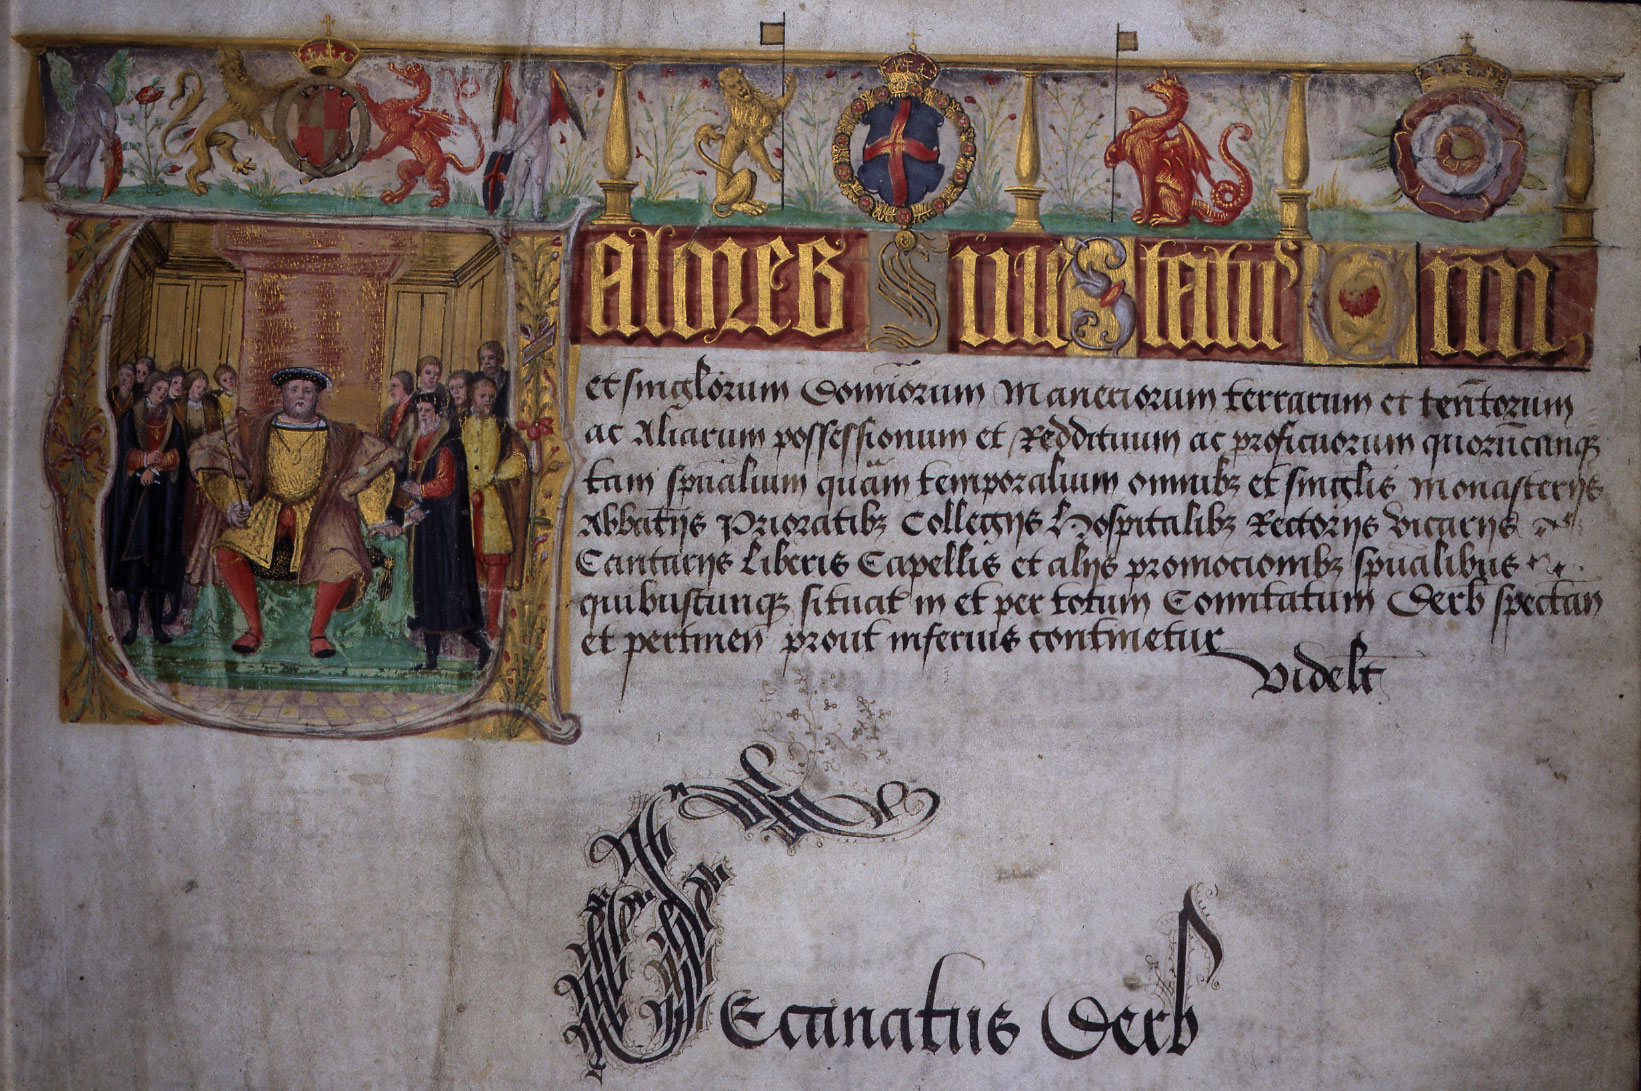 Valores sive status Om̄
et singlorum Domiōrum Maneriorum terrarum et teñtorum
ac Aliarum possessionum et Reddituum ac proficuorum quorūcunqꝫ
tam sp̄ualium quam̄ temporalium omnibꝫ et singlis Monasterijs
Abbatijs Prioratibꝫ Collegijs Hospitalibꝫ Rectorijs Vicarijs
Cantarijs Liberis Capellis et alijs promocionibꝫ sp̄ualibus
quibuscunqꝫ situat in et per totum Comitatum Derb spectan
et pertineñ prout inferius continetur
Videlt
Decanatus Derb